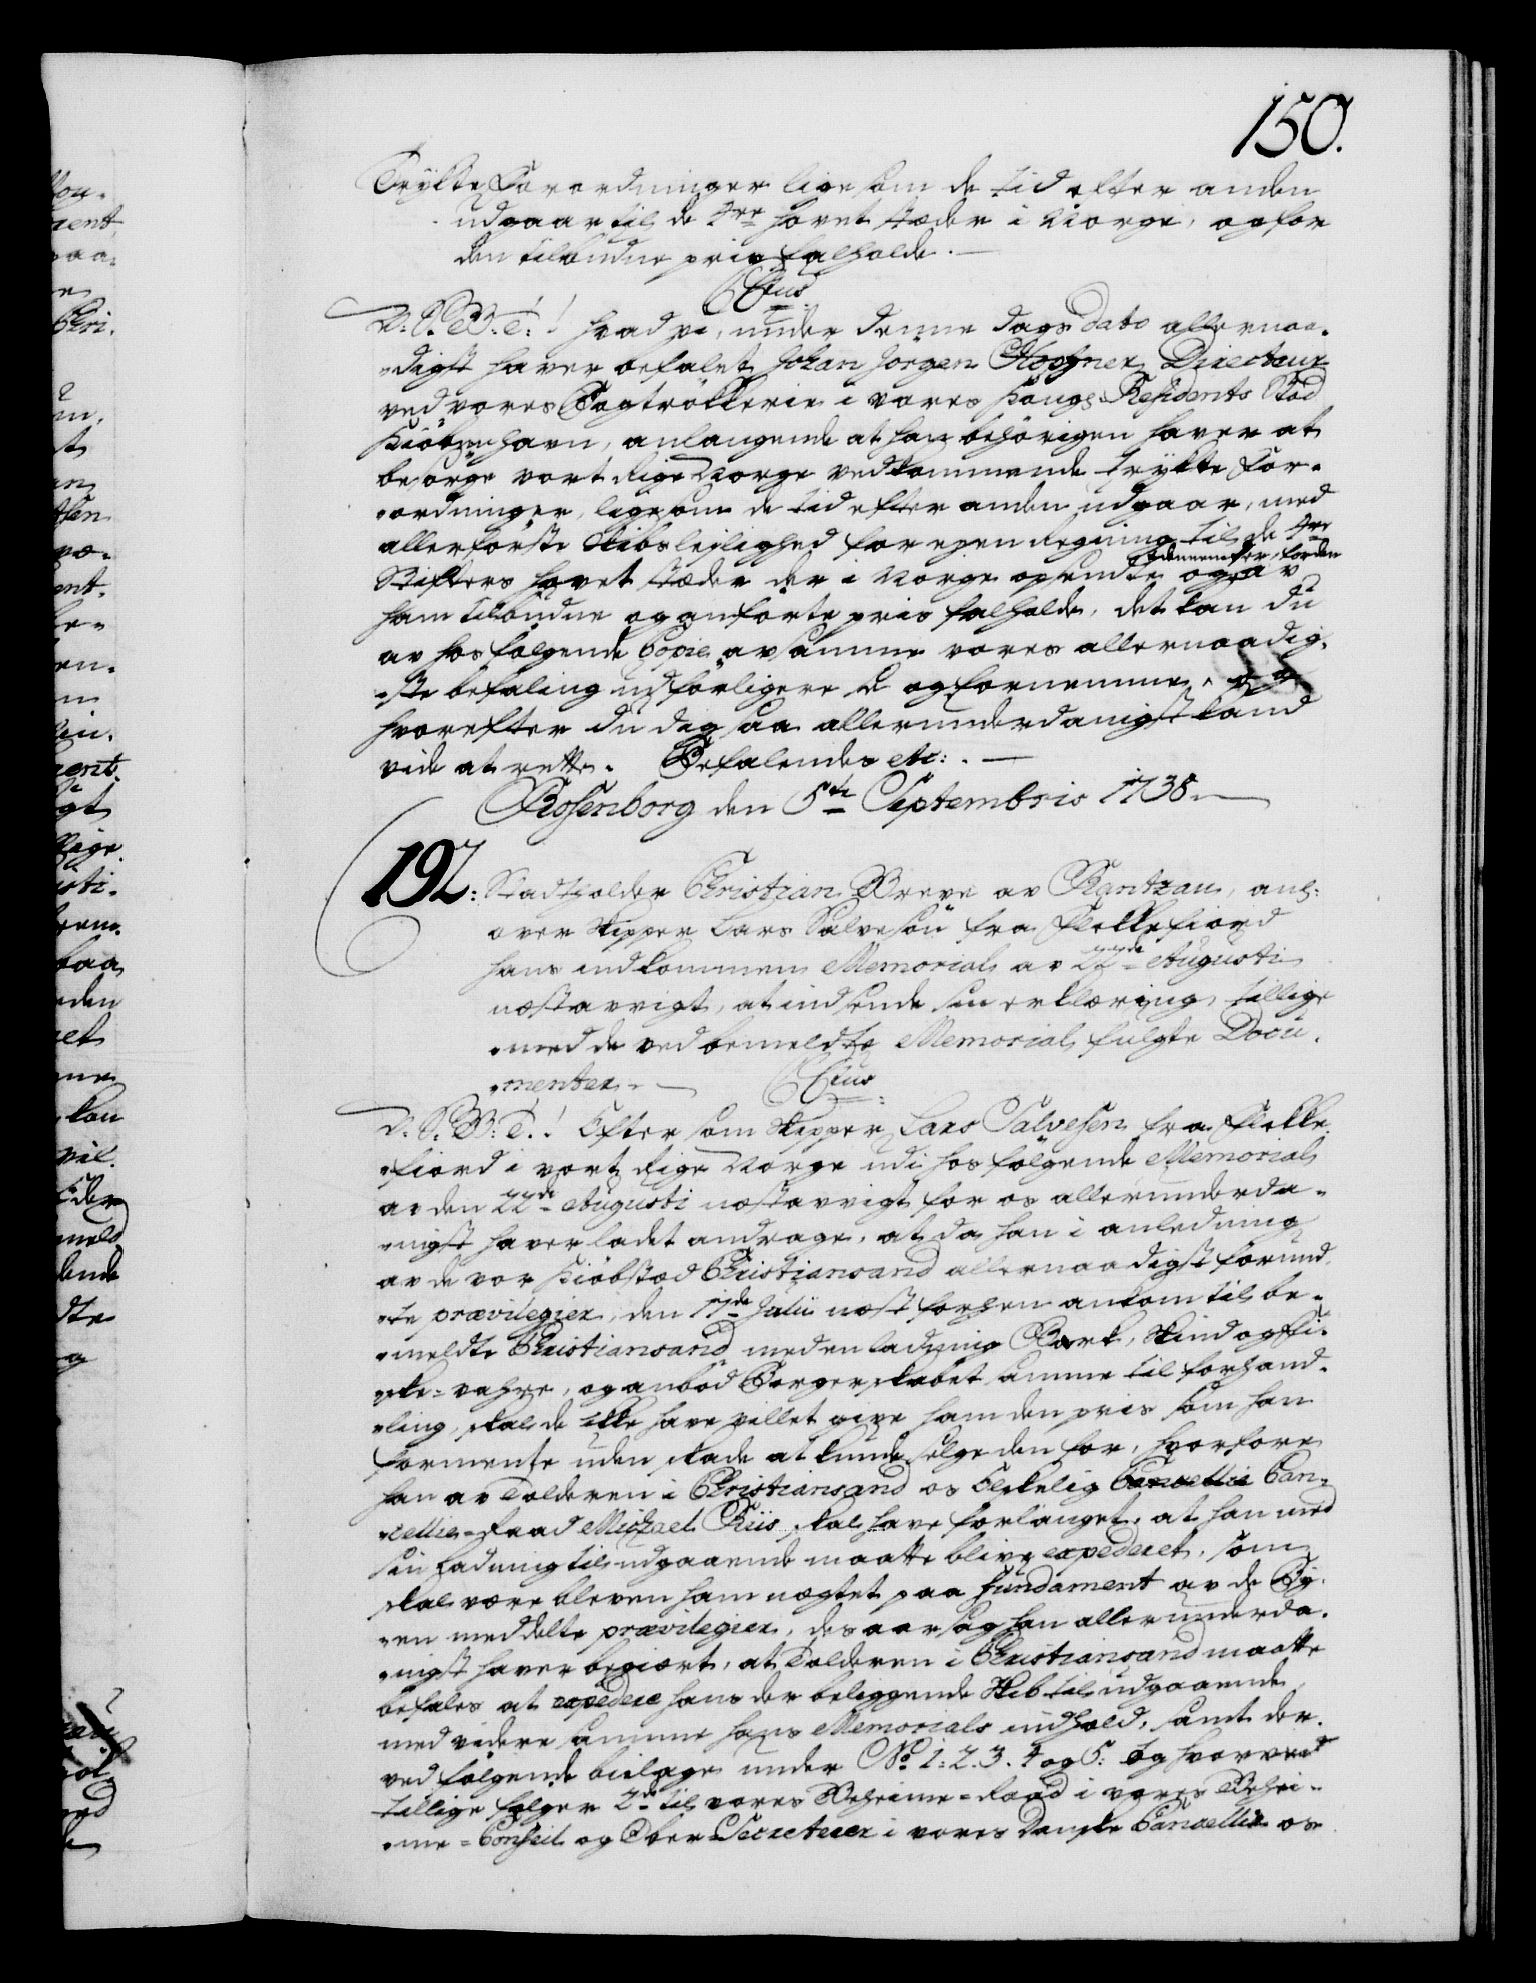 150.
Trykte Forordninger lige som de tid efter anden
udgaar til de 4re Hovet stæder i Norge, og for
den tilbudne priis fastholde.
C6tus
V: S: B: T:! Hvad vi, under denne dags dato allernaa-
digst haver befalet Johan Jørgen Høpfner Directeur
ved vores Bogtrøkkerie i vores Kongl Residents Stad
Kiøbenhavn, anlangende at han behørigen haver at
besørge vort Rige Norge vedkommende trykte For-
ordninger, ligesom de tid efter anden udgaar, med
allerførste Skibs lejlighed for egen Regning til de 4re
Stifters Hovet stæder der i Norge opsendte og av
fornemmer, for den
ham tilbudne og anførte priis fastholde, det kan du
av hosfølgende Copie av samme vores allernaadig-
ste befaling udførligere se og fornemme,
hvorefter du dig saa allerunderdanigst kand
vide at rette. Befalendes etc:
Rosenborg den 5te Septembris 1738
192: Stadtholder Christian Greve av Rantzau, anl:
over Skipper Lars Salvesøn fra Flekkefiord
hans indkommen Memorial av 22de Augusti
næstavvigt, at indsende sin erklæring, tillige
med de ved bemeldte Memorial fulgte Docu-
menter.
C6tus
V: S: B: T:! Eftersom Skipper Lars Salvesen fra Flekke-
fiord i vort Rige Norge udi hosfølgende Memorial
av den 22de Augusti næstavvigt for os allerunderda-
nigst haver ladet andrage, at da han i anledning
av de vor Kiøbstæd Christiansand allernaadigst forund-
te prævilegier, den 17de Julii næst forhen ankom til be-
meldte Christiansand med en ladning Bark, Skind og fi-
ske-vahre, og anbød Borgerskabet samme til forhand-
ling, skal de ikke have villet give ham den priis som han
formente uden skade at kunde selge den for, hvorfore
han av Tolderen i Christiansand os Elskelig Cancellie Can-
cellie-Raad Michael Riis skal have forlanget, at han med
sin Ladning til udgaaende maatte blive expederet, som
skal være bleven ham nægtet paa fundament av de By-
en meddelte prævilegier, des aarsag han allerunderda-
nigst haver begiært, at Tolderen i Christiansand maatte
befales at expedere hans der beliggende Skib til udgaaende
med videre samme hans Memorials indhold, samt der-
ved følgende bielage under No 1: 2. 3. 4 og 5: Og hvorved
tillige følger 2de til vores Geheime-Raad i vores Gehei-
me-Conseil og Ober-Secreterer i vores Danske Cancellie os